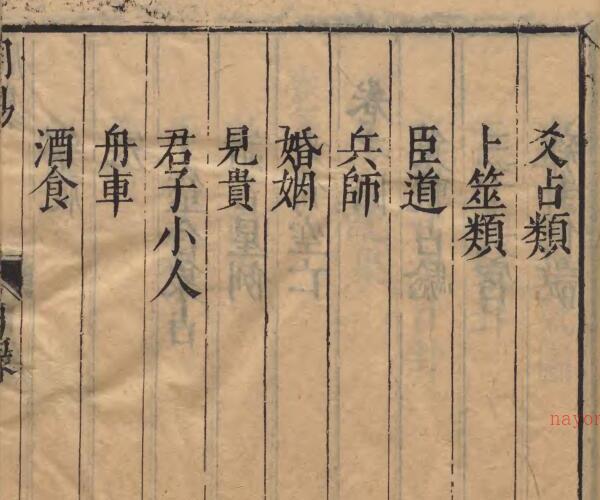 爻占類
卜筮類
臣道
兵師
婚姻
見貴
君子小人
舟車
酒食
nayon